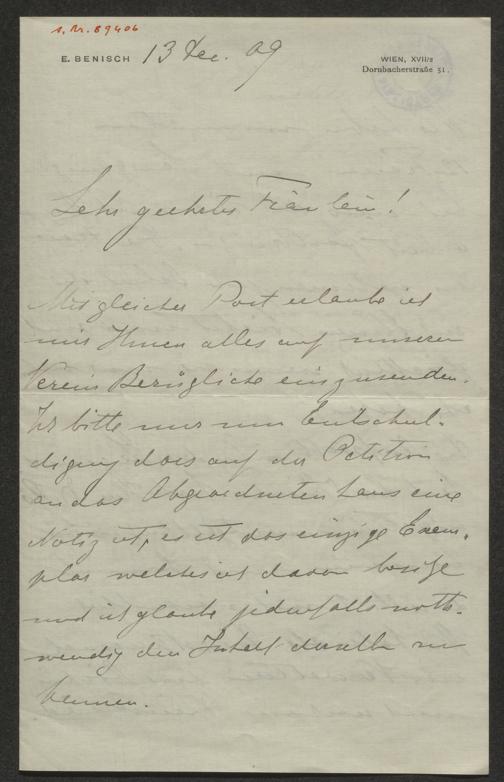 A. Nr. 89406
E. BENISCH 13 Dec. 09
WIEN, XVII/2
Dornbacherstraße 31.
Sehr geehrtes Fräulein!
Mit gleicher Post erlaube ich
mir Ihnen alles auf unseren
Verein Bezügliche einzusenden.
Ich bitte nur um Entschul-
digung dass auf der Petition
an das Abgeordnetenhaus eine
Notiz ist, es ist das einzige Exem-
plar welches ich davon besitze
und ich glaube jedenfalls noth-
wendig den Inhalt derselben zu
kennen.